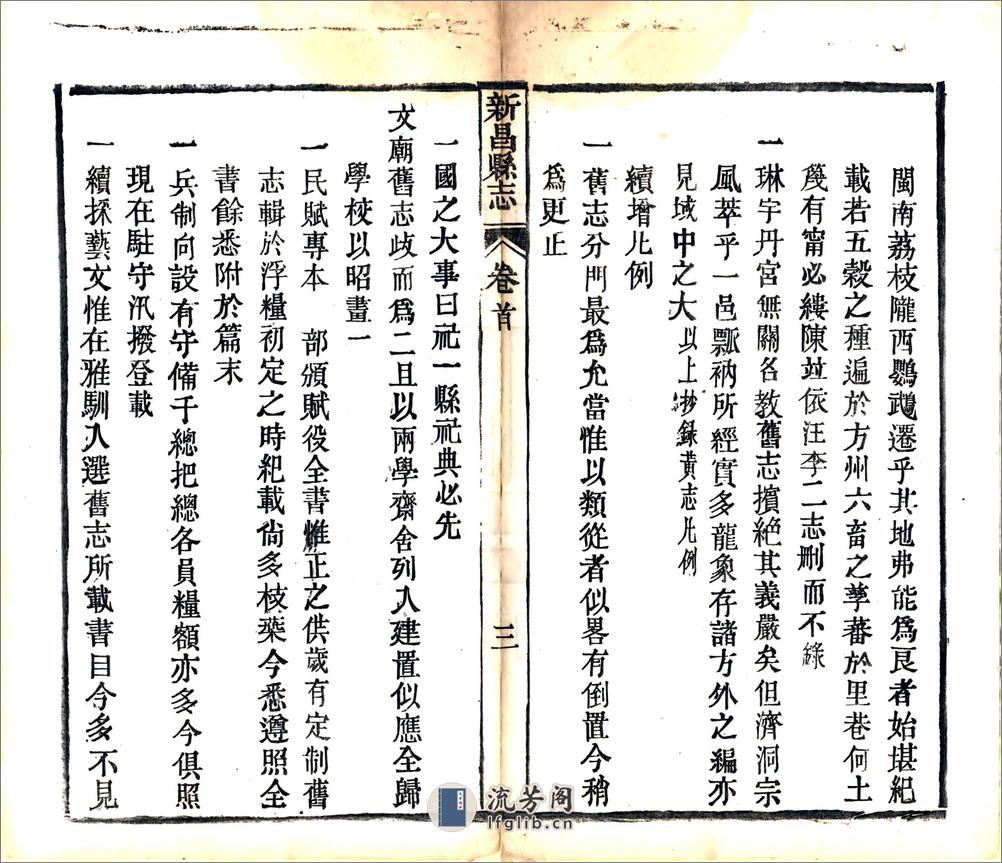 閩南荔枝隴西鸚鵡遷乎其地弗能爲良者始堪紀
載若五穀之種遍於方州六畜之孳蕃於里巷何土
蔑有甯必縷陳竝依汪李二志刪而不錄
一琳宇丹宮無關名教舊志擯絕其義嚴矣但濟洞宗
風萃乎一邑瓢衲所經實多龍象存諸方外之編亦
見域中之大以上抄錄黄志凡例
續增凡例
一舊志分門最爲允當惟以類從者似畧有倒置今稍
爲更正
新昌縣志 卷首 三
一國之大事曰祀一縣祀典必先
文廟舊志歧而爲二且以兩學齋舍列入建置似應全歸
學校以昭畫一
一民賦專本 部頒賦役全書惟正之供歲有定制舊
志輯於浮糧初定之時紀載尙多枝葉今悉遵照全
書餘悉附於篇末
一兵制向設有守備千總把總各員糧額亦多今俱照
現在駐守汛撥登載
一續採藝文惟在雅馴入選舊志所載書目今多不見
流芳阁
lfglib.cn